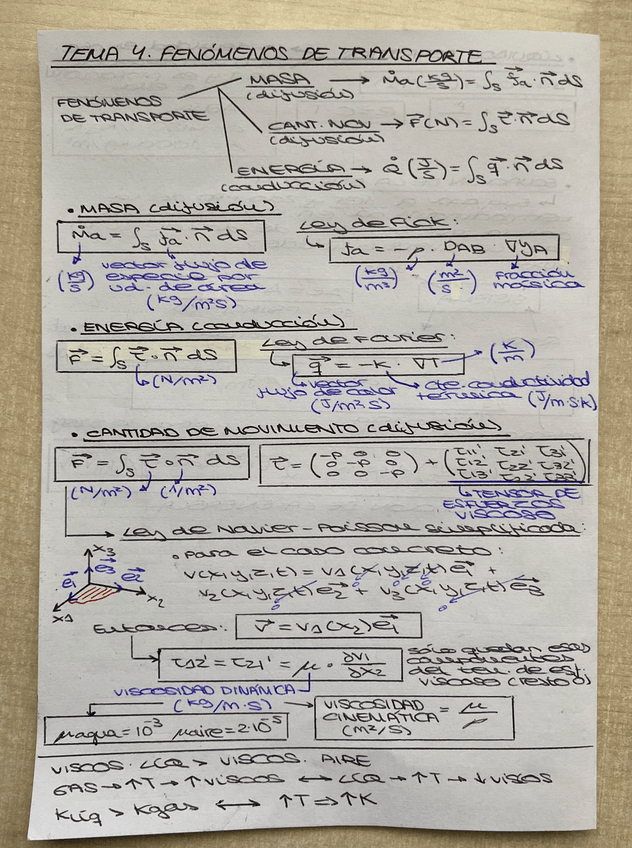 TEMA 4. FENÓMENOS DE TRANSPORTE
FENÓMENOS DE TRANSPORTE
MASA (difusión) → ṁa (kg/s) = ∫s ja · n dS
CANT. MOV (difusión) → F (N) = ∫s τ · n dS
ENERGÍA (conducción) → Q̇ (J/s) = ∫s q · n dS
• MASA (difusión)
ṁa = ∫s ja · n dS
(kg/s)
vector flujo de
especie por
ud. de área
(kg/m²s)
Ley de Fick:
ja = -ρ · DAB · ∇YA
(kg/m³) (m²/s) fracción
másica
• ENERGÍA (conducción)
F = ∫s τ · n dS
(N/m²)
Ley de Fourier:
q = -k · ∇T → (K/m)
vector
flujo de calor
(J/m²·s)
cte. conductividad
térmica (J/m·s·k)
• CANTIDAD DE MOVIMIENTO (difusión)
F = ∫s τ · n dS
(N/m²)
τ = (-p 0 0 / 0 -p 0 / 0 0 -p) + (τ11' τ21' τ31' / τ12' τ22' τ32' / τ13' τ23' τ33')
TENSOR DE
ESFUERZOS
VISCOSO
Ley de Navier-Poisson simplificada:
• Para el caso concreto:
v(x,y,z,t) = v1(x,y,z,t)e1 +
v2(x,y,z,t)e2 + v3(x,y,z,t)e3
x3
e1 e3 e2
x2
x1
Entonces: v = v1(x2)e1
τ12' = τ21' = μ · ∂v1/∂x2
sólo quedan esas
componentes
del ten. de esf.
viscoso (resto 0)
VISCOSIDAD DINÁMICA
(kg/m·s)
μagua = 10⁻³ μaire = 2·10⁻⁵
VISCOSIDAD
CINEMÁTICA = μ/ρ
(m²/s)
VISCOS. LÍQ > VISCOS. AIRE
GAS → ↑T → ↑VISCOS ↔ LÍQ → ↑T → ↓VISCOS
KLíq > Kgas ↔ ↑T ⇒ ↑K